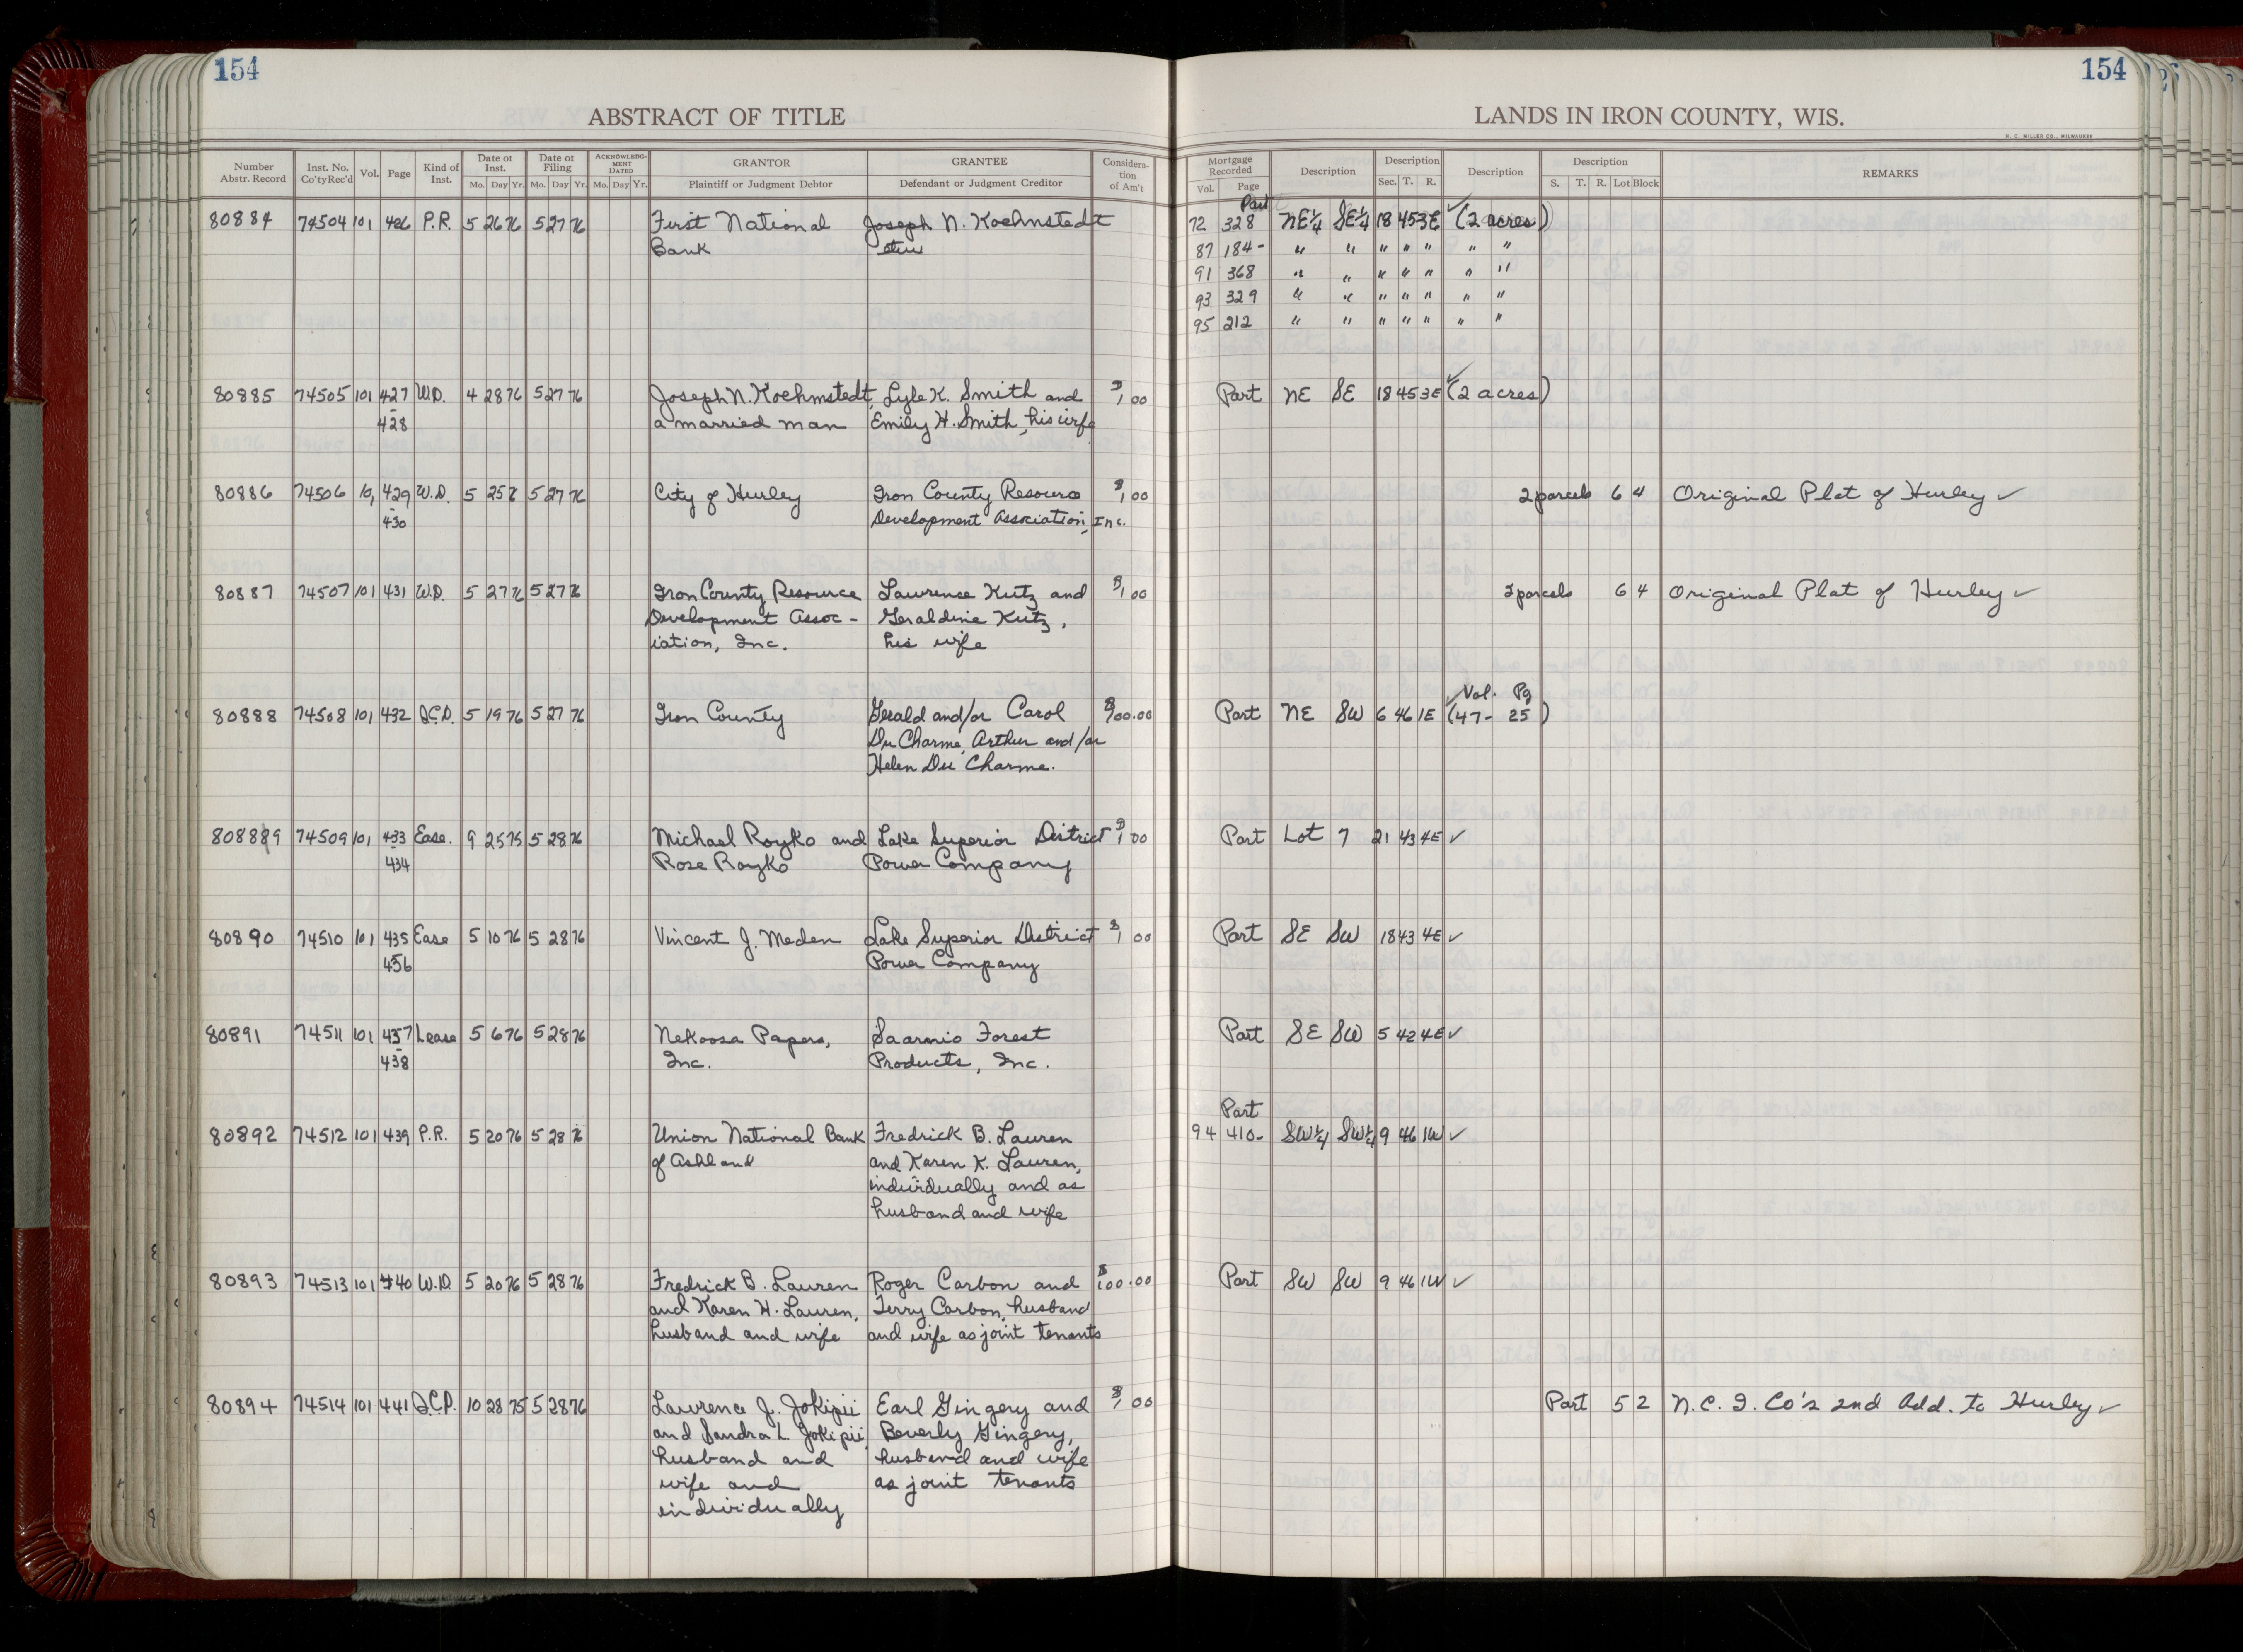 154
154
ABSTRACT OF TITLE
LANDS IN IRON COUNTY, WIS.
H. C. MILLER CO., MILWAUKEE
Number Abstr. Record Inst. No. Co'ty Rec'd Vol. Page Kind of Inst. Date of Inst. Mo. Day Yr. Date of Filing Mo. Day Yr. ACKNOWLEDGMENT DATED Mo. Day Yr. GRANTOR Plaintiff or Judgment Debtor GRANTEE Defendant or Judgment Creditor Consideration of Am't
Mortgage Recorded Vol. Page Description Description Sec. T. R. Description Description S. T. R. Lot Block REMARKS
Part
80884 74504 101 426 P.R. 5 26 76 5 27 76 First National Joseph N. Koehmstedt 72 328 NE¼ SE¼ 18 45 3E ✓ (2 acres)
Bank 87 184- " " " " " " "
91 368 " " " " " " "
93 329 " " " " " " "
95 212 " " " " " " "
80885 74505 101 427 W.D. 4 28 76 5 27 76 Joseph N. Koehmstedt, Lyle K. Smith and $1.00 Part NE SE 18 45 3E ✓ (2 acres)
- 428 a married man Emily H. Smith, his wife
80886 74506 10, 429 W.D. 5 25 76 5 27 76 City of Hurley Iron County Resource $1.00 2 parcels 6 4 Original Plat of Hurley ✓
- 430 Development Association, Inc.
80887 74507 101 431 W.D. 5 27 76 5 27 76 Iron County Resource Lawrence Kutz and $1.00 2 parcels 6 4 Original Plat of Hurley ✓
Development Assoc- Geraldine Kutz,
iation, Inc. his wife
✓ Vol. Pg
80888 74508 101 432 Q.C.D. 5 19 76 5 27 76 Iron County Gerald and/or Carol $100.00 Part NE SW 6 46 1E (47- 25)
Du Charme, Arthur and/or
Helen Du Charme.
808889 74509 101 433 Ease. 9 25 75 5 28 76 Michael Royko and Lake Superior District $1.00 Part Lot 7 21 43 4E ✓
- 434 Rose Royko Power Company
80890 74510 101 435 Ease 5 10 76 5 28 76 Vincent J. Meden Lake Superior District $1.00 Part SE SW 18 43 4E ✓
- 436 Power Company
80891 74511 101 437 Lease 5 6 76 5 28 76 Nekoosa Papers, Saarnio Forest Part SE SW 5 42 4E ✓
- 438 Inc. Products, Inc.
Part
80892 74512 101 439 P.R. 5 20 76 5 28 76 Union National Bank Fredrick B. Lauren 94 410- SW¼ SW¼ 9 46 1W ✓
of Ashland and Karen K. Lauren,
individually and as
husband and wife
80893 74513 101 440 W.D. 5 20 76 5 28 76 Fredrick B. Lauren Roger Carbon and $100.00 Part SW SW 9 46 1W ✓
and Karen H. Lauren, Terry Carbon, husband
husband and wife and wife as joint tenants
80894 74514 101 441 Q.C.D. 10 28 75 5 28 76 Lawrence J. Jokipii Earl Gingery and $1.00 Part 5 2 N.C.I. Co's 2nd Add. to Hurley ✓
and Sandra L Jokipii, Beverly Gingery,
husband and husband and wife
wife and as joint tenants
individually